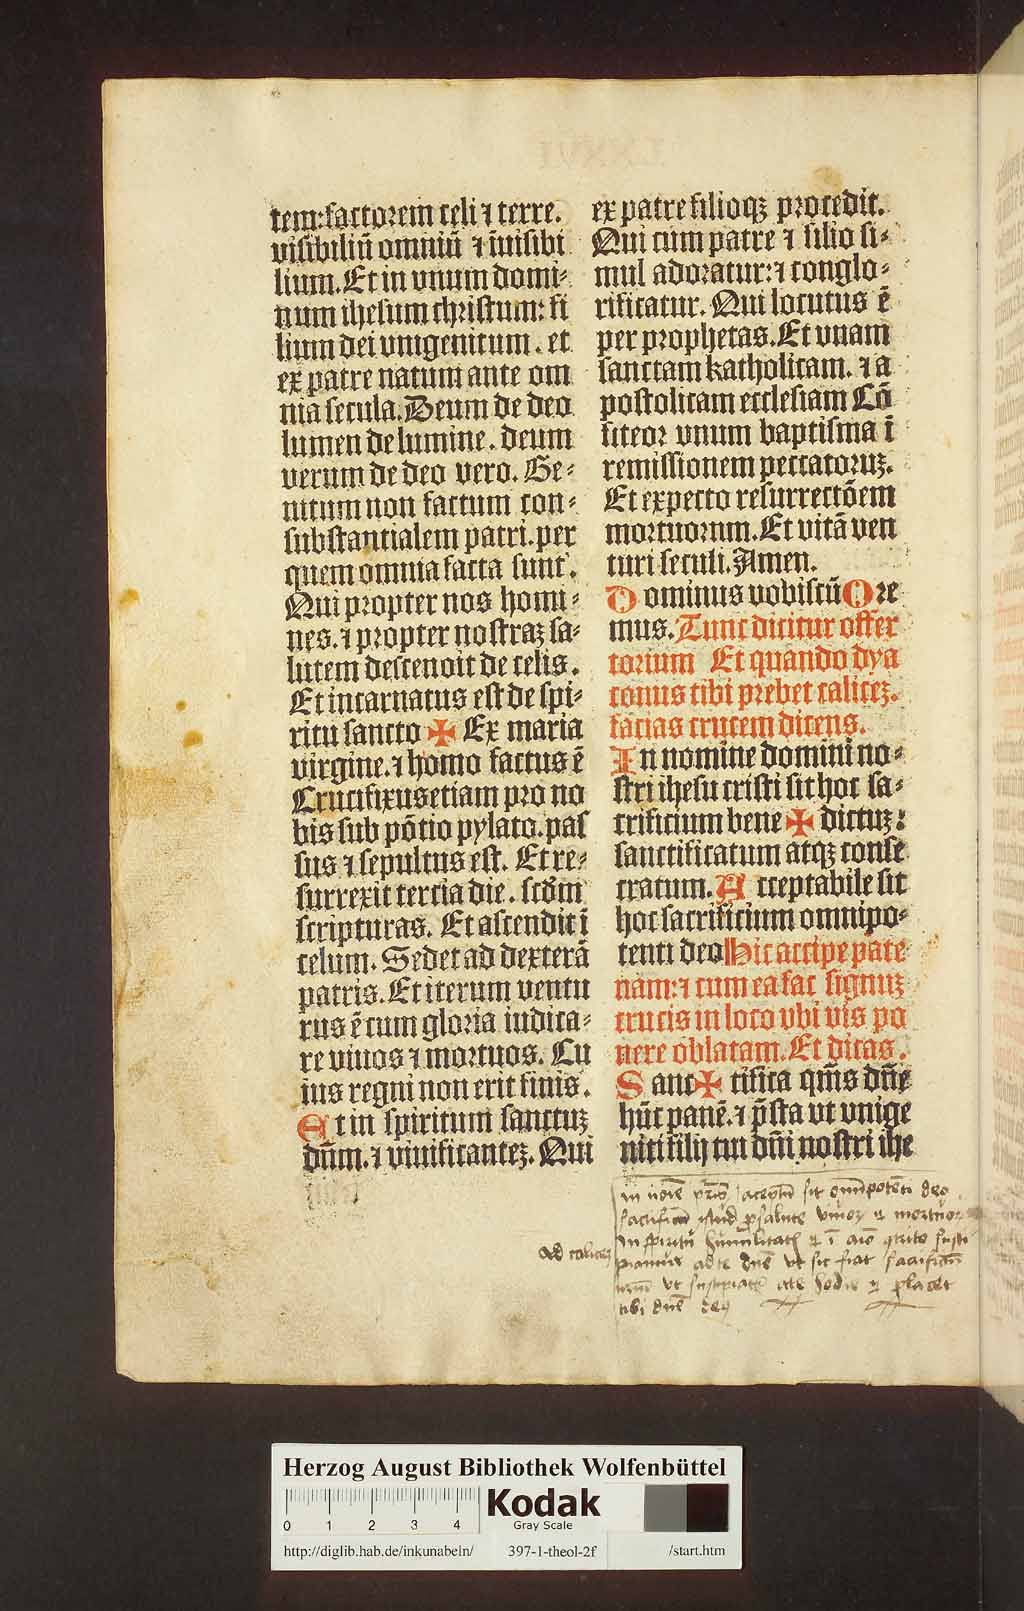 tem: factorem celi ⁊ terre.
visibiliū omniū ⁊ īuisibi
lium. Et in vnum domi⸗
num ihesum christum: fi
lium dei vnigenitum. et
ex patre natum ante om
nia secula. Deum de deo
lumen de lumine. deum
verum de deo vero. Ge⸗
nitum non factum con⸗
substantialem patri. per
quem omnia facta sunt.
Qui propter nos homi⸗
nes. ⁊ propter nostraꝫ sa⸗
lutem descendit de celis.
Et incarnatus est de spi⸗
ritu sancto ✠ Ex maria
virgine. ⁊ homo factus ē
Crucifixus etiam pro no
bis sub pōtio pylato. pas
sus ⁊ sepultus est. Et re⸗
surrexit tercia die. scd̄m
scripturas. Et ascendit ī
celum. Sedet ad dexterā
patris. Et iterum ventu
rus ē cum gloria iudica⸗
re viuos ⁊ mortuos. Cu
ius regni non erit finis.
Et in spiritum sanctuꝫ
dn̄m. ⁊ viuificanteꝫ. Qui
ex patre filioqꝫ procedit.
Qui cum patre ⁊ filio si⸗
mul adoratur: ⁊ conglo⸗
rificatur. Qui locutus ē
per prophetas. Et vnam
sanctam katholicam. ⁊ a
postolicam ecclesiam Cō
fiteor vnum baptisma ī
remissionem peccatoruꝫ.
Et expecto resurrectōem
mortuorum. Et vitā ven
turi seculi. Amen.
Dominus vobiscū Ore
mus. Tunc dicitur offer
torium Et quando dya
conus tibi prebet caliceꝫ.
facias crucem dicens.
In nomine domini no⸗
stri ihesu cristi sit hoc sa⸗
crificium bene ✠ dictuꝫ:
sanctificatum atqꝫ conse
cratum. Acceptabile sit
hoc sacrificium omnipo⸗
tenti deo Hic accipe pate
nam: ⁊ cum ea fac signuꝫ
crucis in loco vbi vis po
nere oblatam. Et dicas.
Sanc ✠ tifica qm̄s dn̄e
hūc panē. ⁊ p̄sta vt vnige
niti filij tui dn̄i nostri ihe
sit omīpotēti deo
salute viuoꝝ ⁊ mortuoꝝ
Ad caliceꝫ
ad te dn̄e vt sic fiat sacrificiū
tibi dn̄e
Herzog August Bibliothek Wolfenbüttel
0 1 2 3 4
Kodak
Gray Scale
http://diglib.hab.de/inkunabeln/ 397-1-theol-2f /start.htm